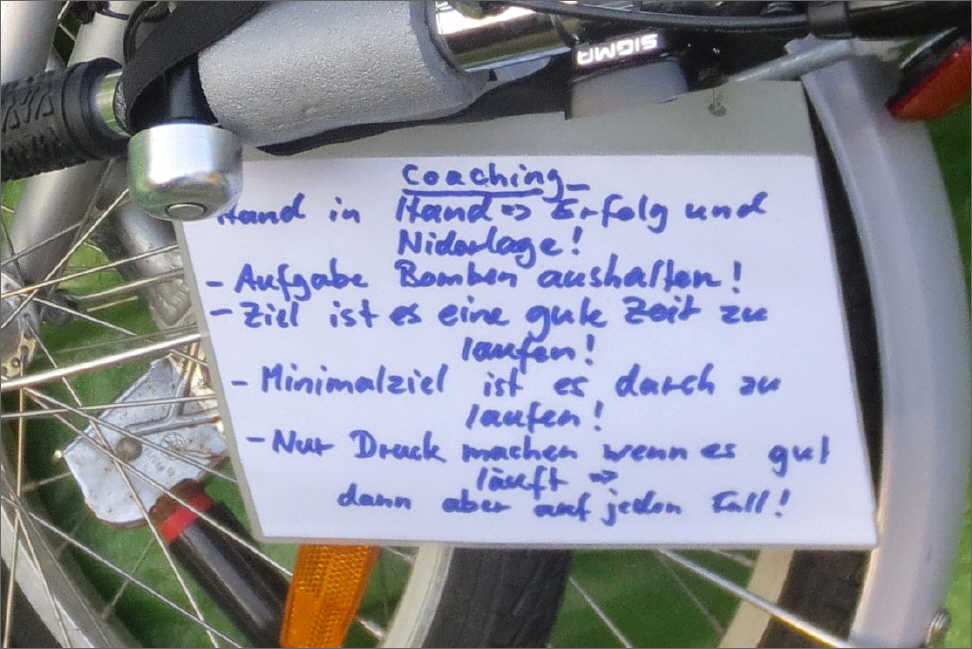 SIGMA
Coaching
Hand in Hand => Erfolg und
Niderlage!
- Aufgabe Bomben aushalten!
- Ziel ist es eine gute Zeit zu
laufen!
- Minimalziel ist es durch zu
laufen!
- Nur Druck machen wenn es gut
läuft =>
dann aber auf jeden Fall!